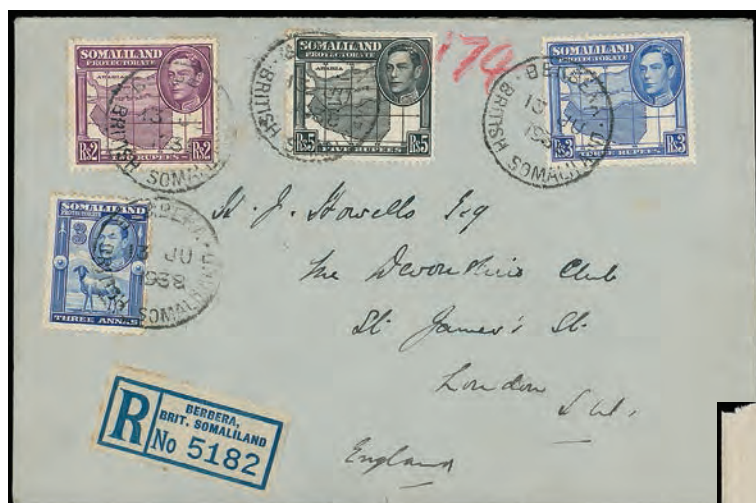 SOMALILAND
PROTECTORATE
ARABIA
Rs2
TWO RUPEES
Rs2
SOMALILAND
PROTECTORATE
ARABIA
Rs5
FIVE RUPEES
Rs5
179
SOMALILAND
PROTECTORATE
Rs3
THREE RUPEES
Rs3
BERBERA
13 JU
BRITISH SOMALILAND
SOMALILAND
PROTECTORATE
3
THREE ANNAS
BERBERA
13 JU
1938
BRITISH SOMALILAND
H. J. Howells Esq
The Devonshire Club
St. James's St.
London
S.W.
England
R
BERBERA,
BRIT. SOMALILAND
No 5182